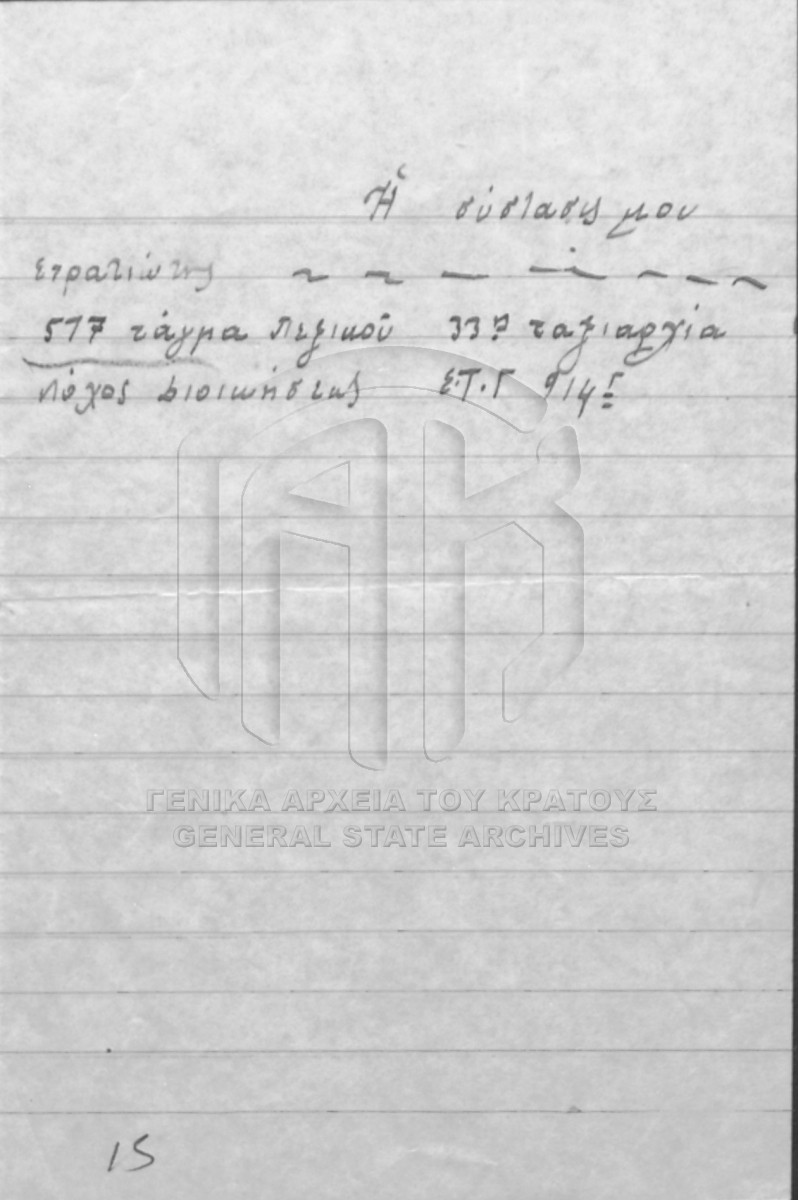 Ἡ σύστασις μου
Στρατιώτης ~ ~ — — ~ ~ ~
517 τάγμα πεζικοῦ 33η ταξιαρχία
Λόχος Διοικήσεως Σ.Τ.Γ 914Γ
ΓΕΝΙΚΑ ΑΡΧΕΙΑ ΤΟΥ ΚΡΑΤΟΥΣ
GENERAL STATE ARCHIVES
15